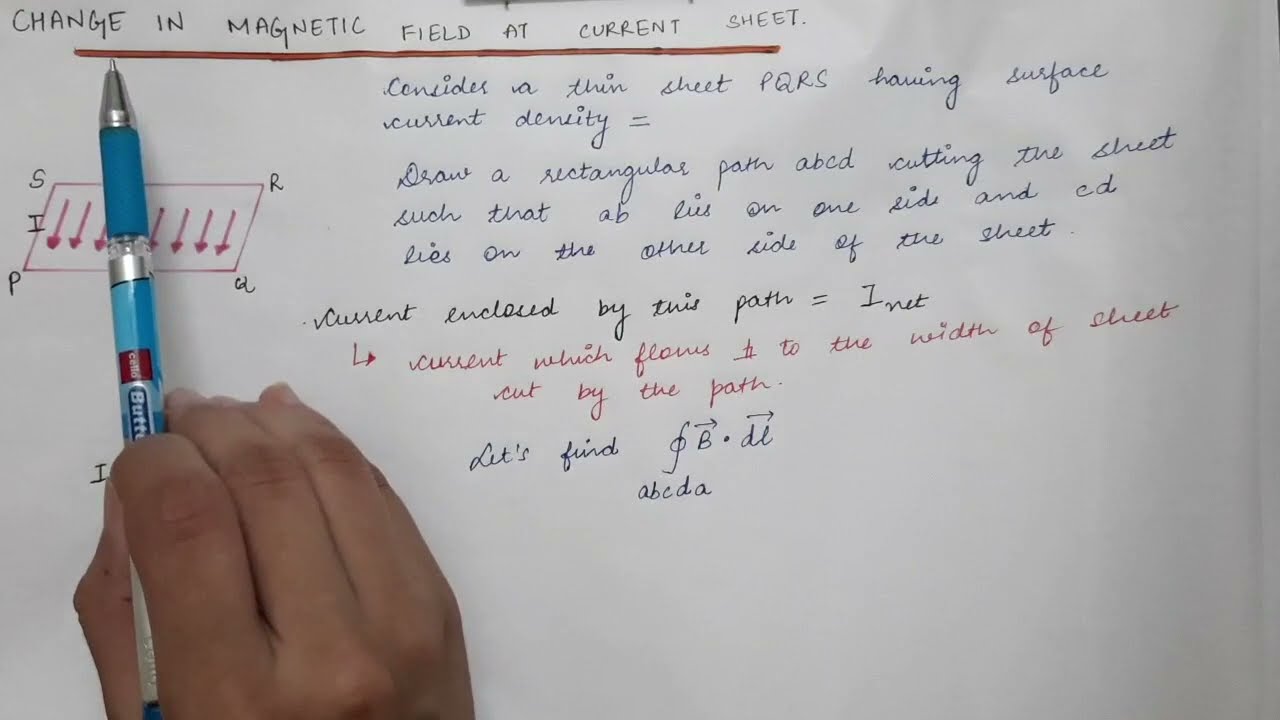 CHANGE IN MAGNETIC FIELD AT CURRENT SHEET.
Consider a thin sheet PQRS having surface
current density =
Draw a rectangular path abcd cutting the sheet
such that ab lies on one side and cd
lies on the other side of the sheet.
S
R
I
P
Q
Current enclosed by this path = Inet
↳ current which flows ⊥ to the width of sheet
cut by the path.
Let's find ∮B⃗ · dl⃗
abcda
I
cello
Butt